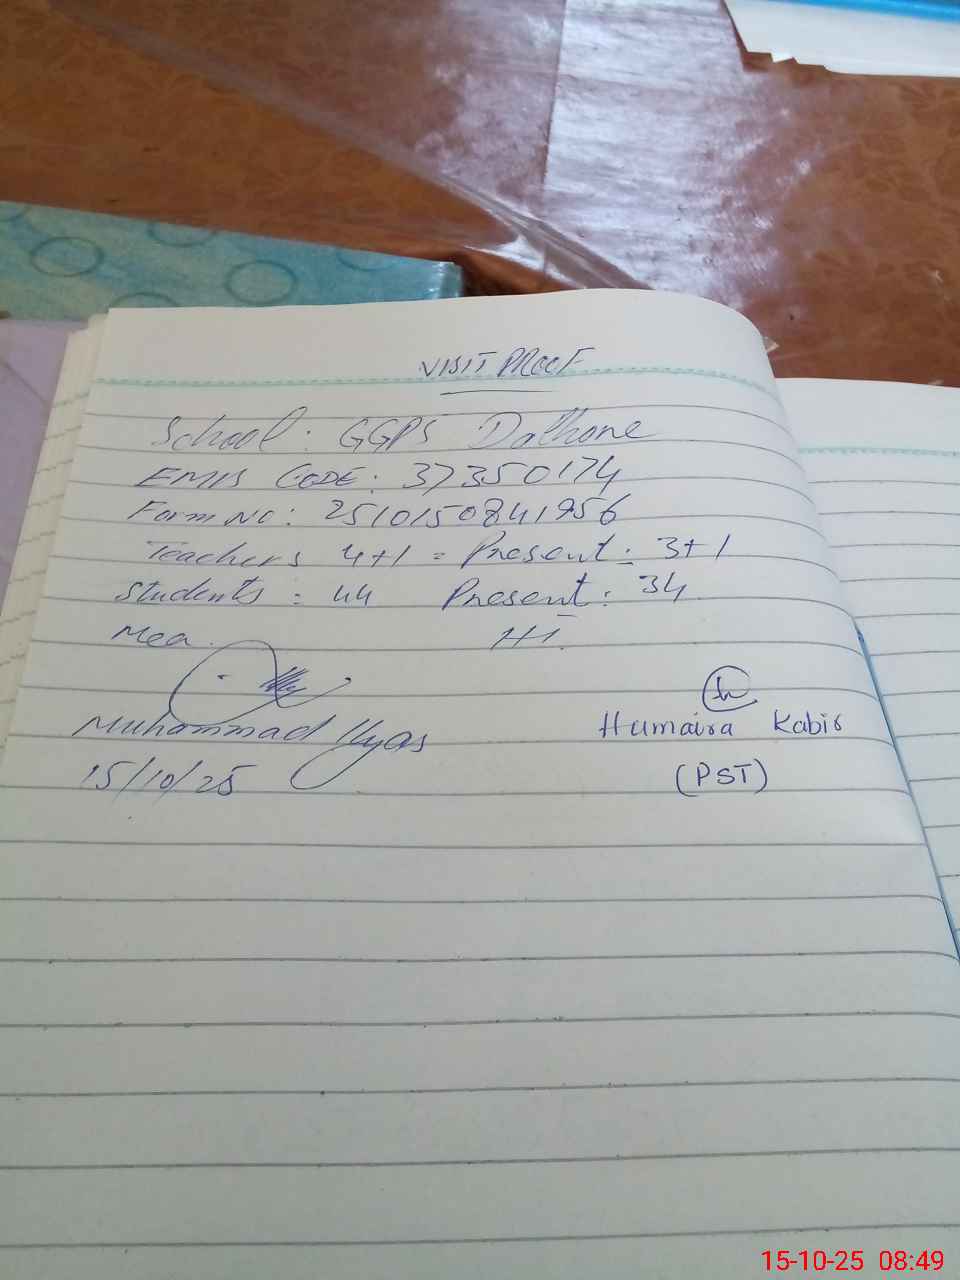 VISIT PROOF
School: GGPS Dalhone
EMIS CODE: 37350174
Form NO: 2510150841956
Teachers 4+1 = Present: 3+1
Students: 44 Present: 34
Mea. HT.
Muhammad Ilyas Humaira Kabir
15/10/25 (PST)
15-10-25 08:49